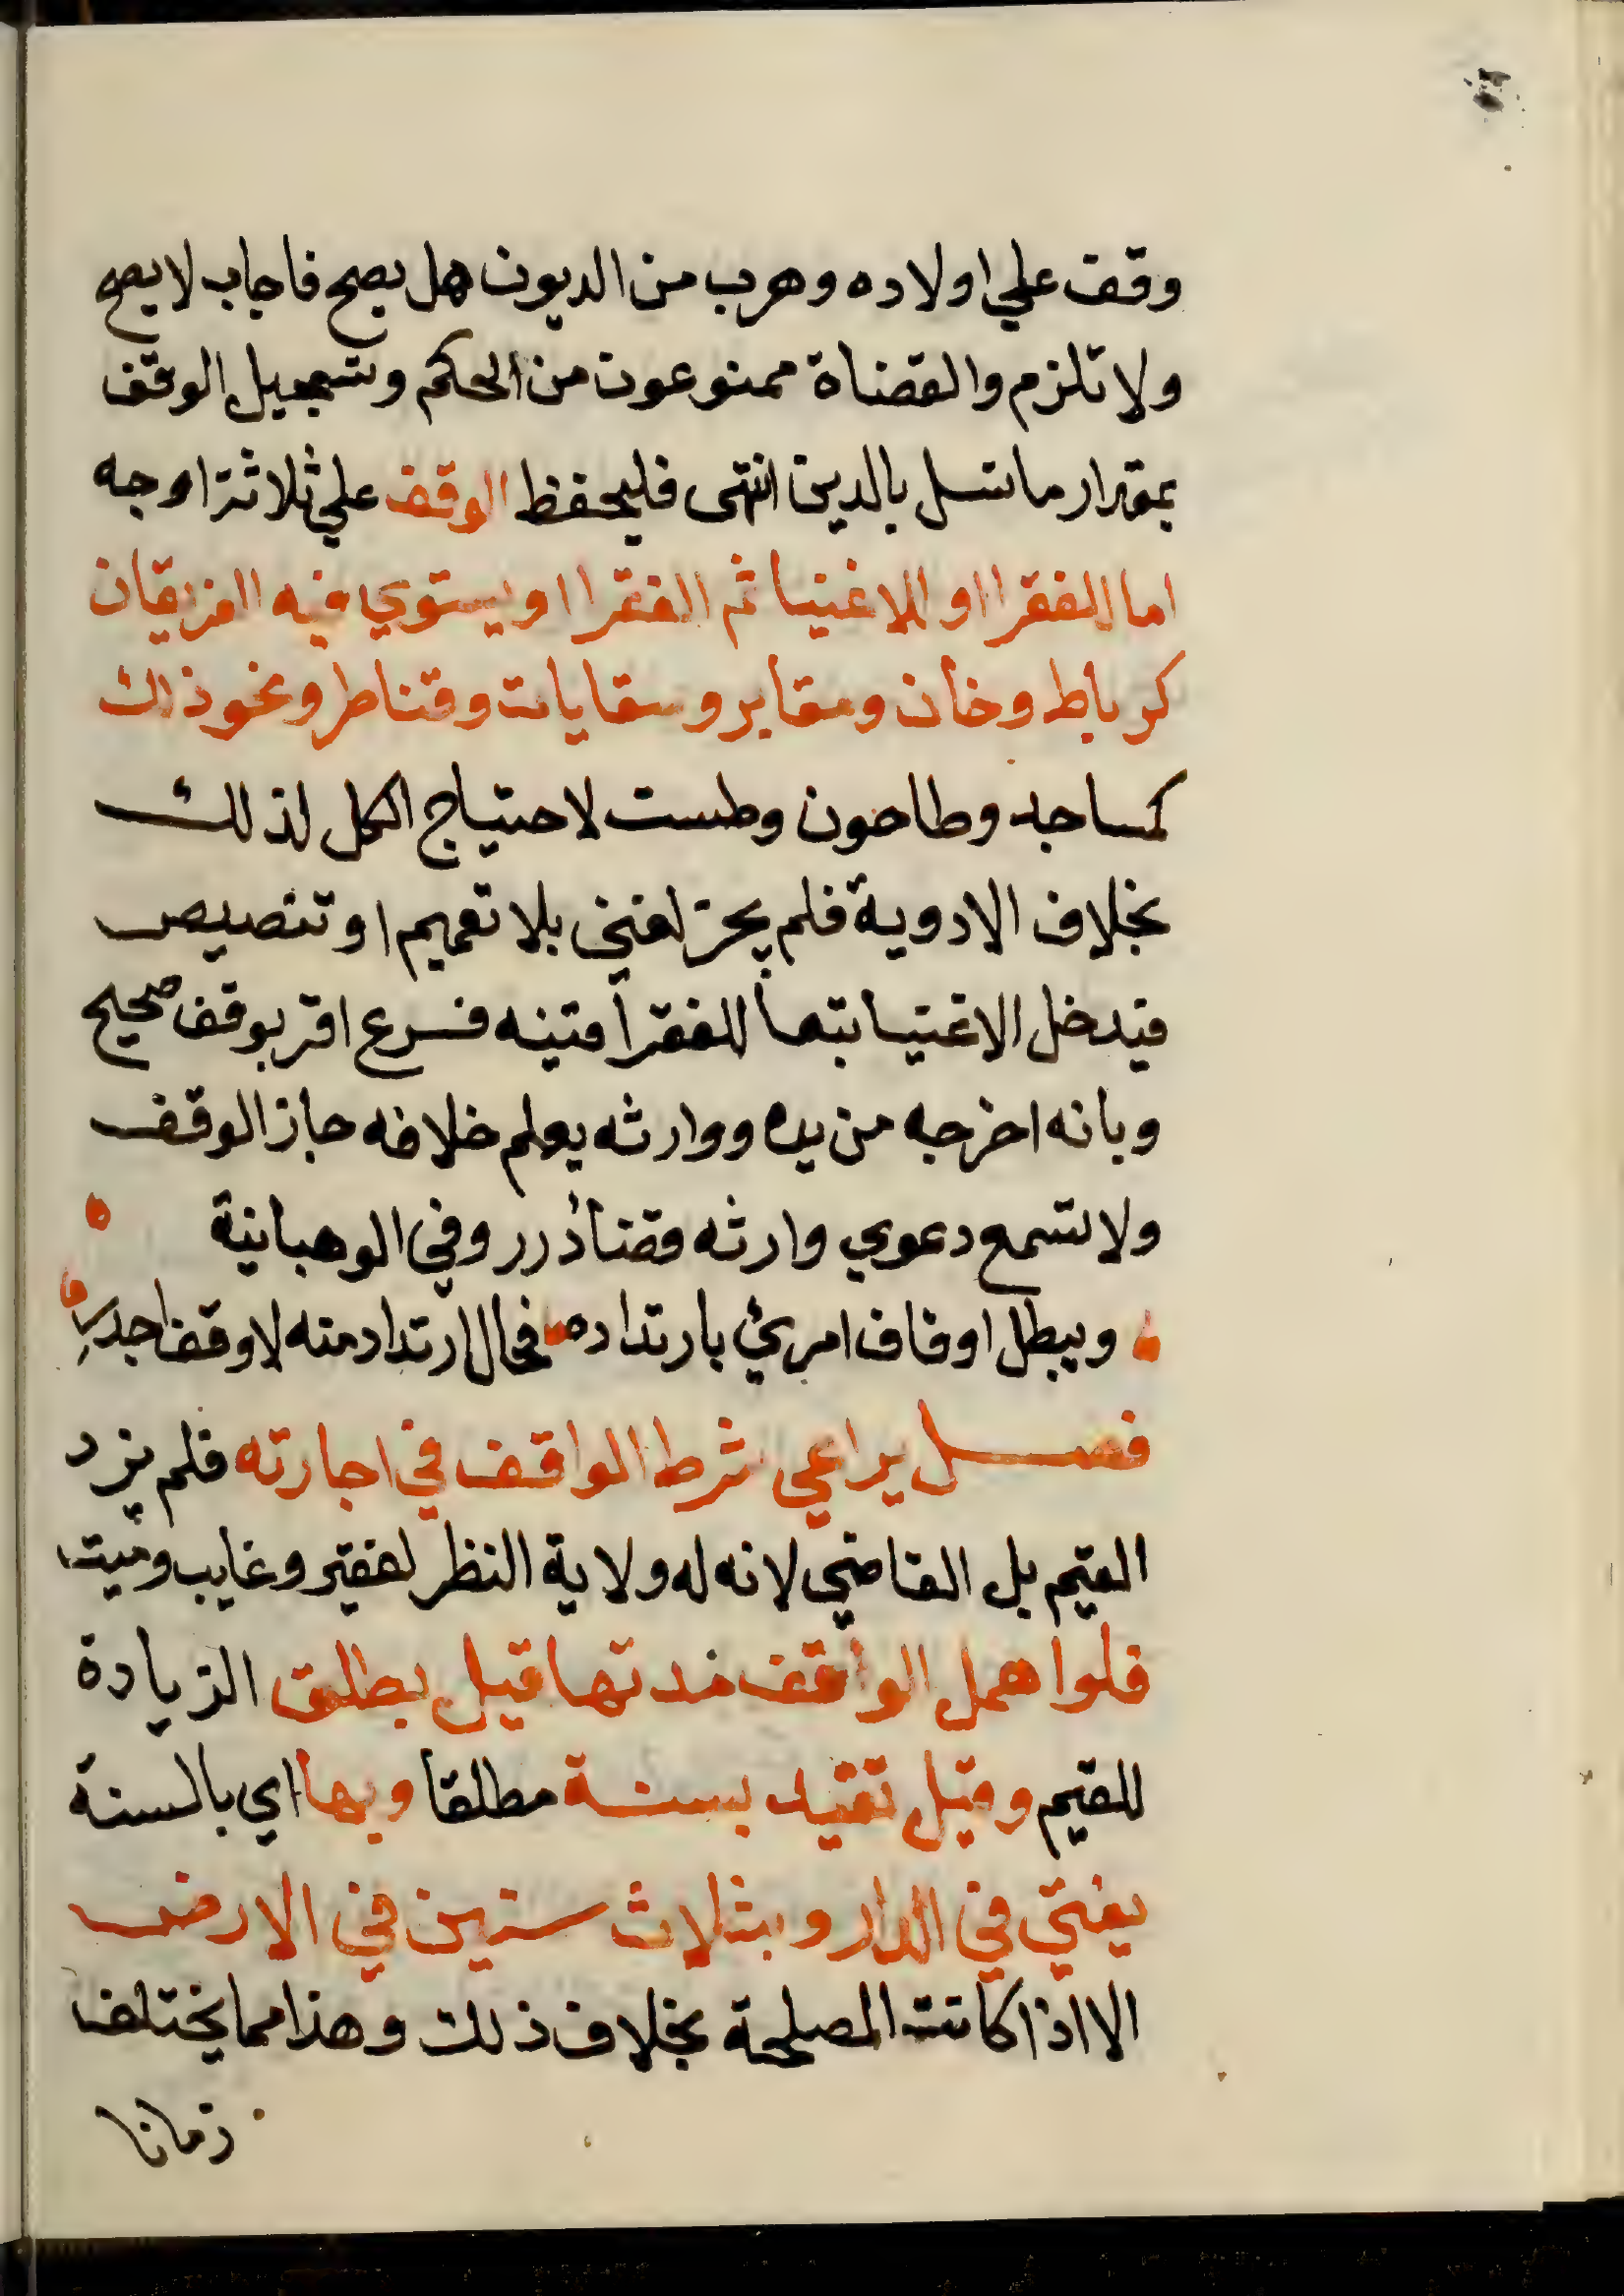 وقف علي اولاده وهرب من الديون هل يصح فاجاب لا يصح
ولا تلزم والقضاة ممنوعون من الحكم وتسجيل الوقف
بمقدار ما شغل بالدين انتهى فليحفظ الوقف علي ثلاثة اوجه
اما للفقرا او للاغنيا ثم الفقرا او يستوي فيه الفريقان
كرباط وخان ومقابر وسقايات وقناطر ونحو ذلك
كمساجد وطاحون وطست لاحتياج الكل لذلك
بخلاف الادوية فلم يجز لغني بلا تعميم او تنصيص
فيدخل الاغنيا تبعا للفقرا قنيه فرع اقر بوقف صحيح
وبانه اخرجه من يده ووارثه يعلم خلافه جاز الوقف
ولا تسمع دعوي وارثه قضا درر وفي الوهبانية
ويبطل اوقاف امرئ بارتداده فحال ارتداد منه لا وقف اجدر
فصل يراعي شرط الواقف في اجارته فلم يزد
القيم بل القاضي لانه له ولاية النظر لفقير وغايب وميت
فلو اهمل الواقف مدتها قيل يطلق الزيادة
للقيم وقيل تقيد بسنة مطلقا وبها اي بالسنة
يفتي في الدار وبثلاث سنين في الارض
الا اذا كانت المصلحة بخلاف ذلك وهذا مما يختلف
زمانا